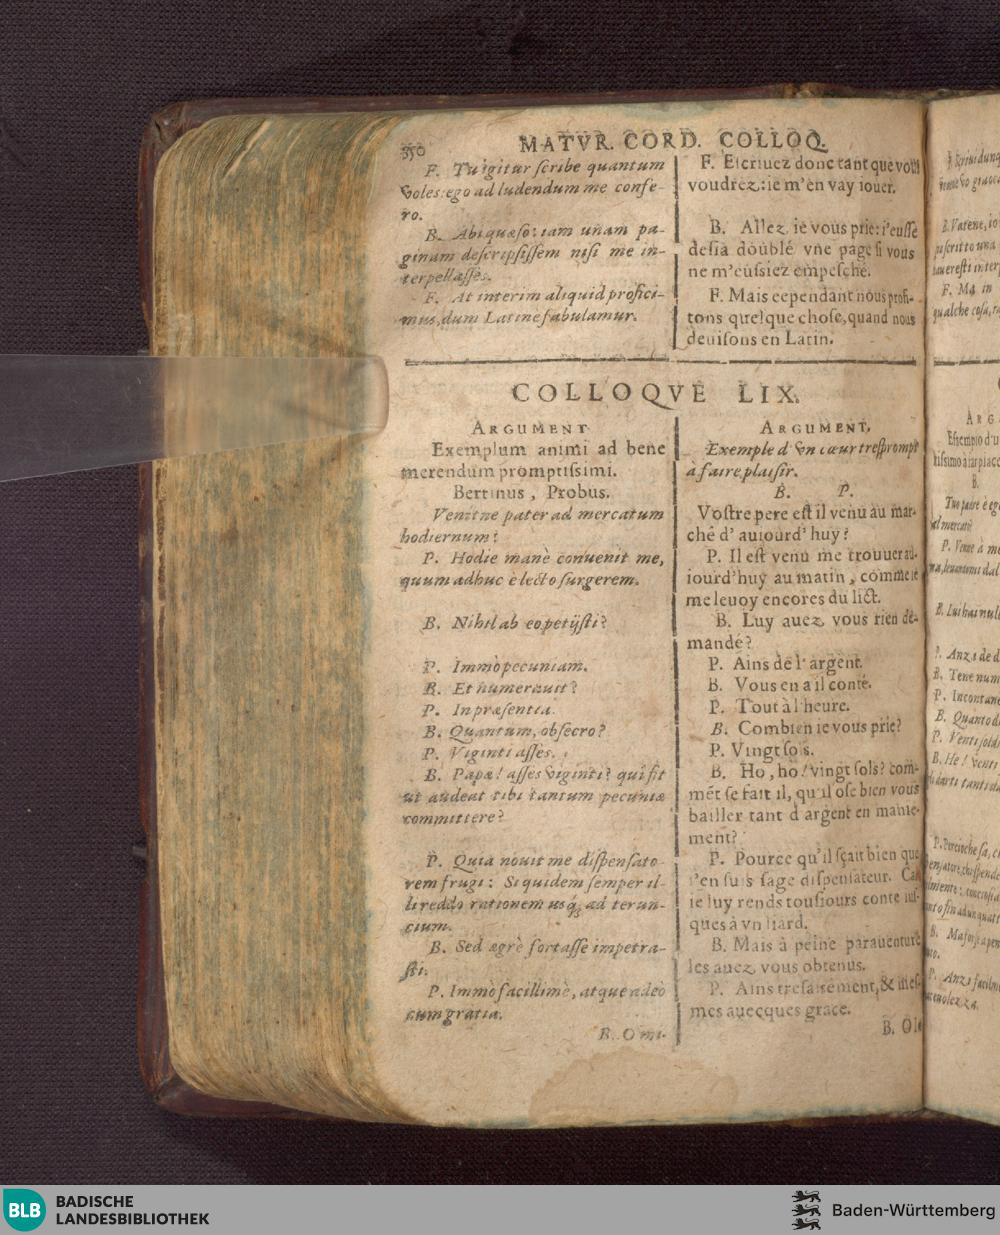 350
MATVR. CORD. COLLOQ.
F. Tu igitur scribe quantum
voles: ego ad ludendum me confe-
ro.
B. Abi quæso: iam unam pa-
ginam descripsissem nisi me in-
terpellasses.
F. At interim aliquid profici-
mus, dum Latine fabulamur.
F. Escriuez donc tant que vous
voudrez: ie m'en vay iouer.
B. Allez ie vous prie: i'eusse
desia doublé vne page si vous
ne m'eussiez empesché.
F. Mais cependant nous profi-
tons quelque chose, quand nous
deuisons en Latin.
COLLOQVE LIX.
ARGUMENT
Exemplum animi ad bene
merendum promptissimi.
Bertinus, Probus.
Venitne pater ad mercatum
hodiernum?
P. Hodie manè conuenit me,
quum adhuc è lecto surgerem.
B. Nihil ab eo petijsti?
P. Immò pecuniam.
B. Et numerauit?
P. In præsentia.
B. Quantum, obsecro?
P. Viginti asses.
B. Papæ! asses viginti? qui fit
ut audeat tibi tantum pecuniæ
committere?
P. Quia nouit me dispensato-
rem frugi: Siquidem semper il-
li reddo rationem usq; ad terun-
cium.
B. Sed ægrè fortasse impetra-
sti.
P. Immò facillimè, atque adeò
cum gratia.
B. O mi-
ARGUMENT,
Exemple d'vn cœur tresprompt
à faire plaisir.
B. P.
Vostre pere est il venu au mar-
ché d'aujourd'huy?
P. Il est venu me trouuer au-
iourd'huy au matin, comme ie
me leuoy encores du lict.
B. Luy auez vous rien de-
mandé?
P. Ains de l'argent.
B. Vous en a il conté.
P. Tout à l'heure.
B. Combien ie vous prie?
P. Vingt sols.
B. Ho, ho! vingt sols? com-
mēt se fait il, qu'il ose bien vous
bailler tant d'argent en manie-
ment?
P. Pource qu'il sçait bien que
i'en suis sage dispensateur. Car
ie luy rends tousiours conte ius-
ques à vn liard.
B. Mais à peine parauenture
les auez vous obtenus.
P. Ains tresaisement, & mes-
mes auecques grace.
B. O
B. Varene, io
F. Ma in
qualche cosa,
ARG
Essempio d'u
B.
B. Lui hai nul
P. Anzi de d
B. Tene num
P. Incontan
B. Quanto d
P. Venti soldi
B. He! venti
BLB
BADISCHE
LANDESBIBLIOTHEK
Baden-Württemberg